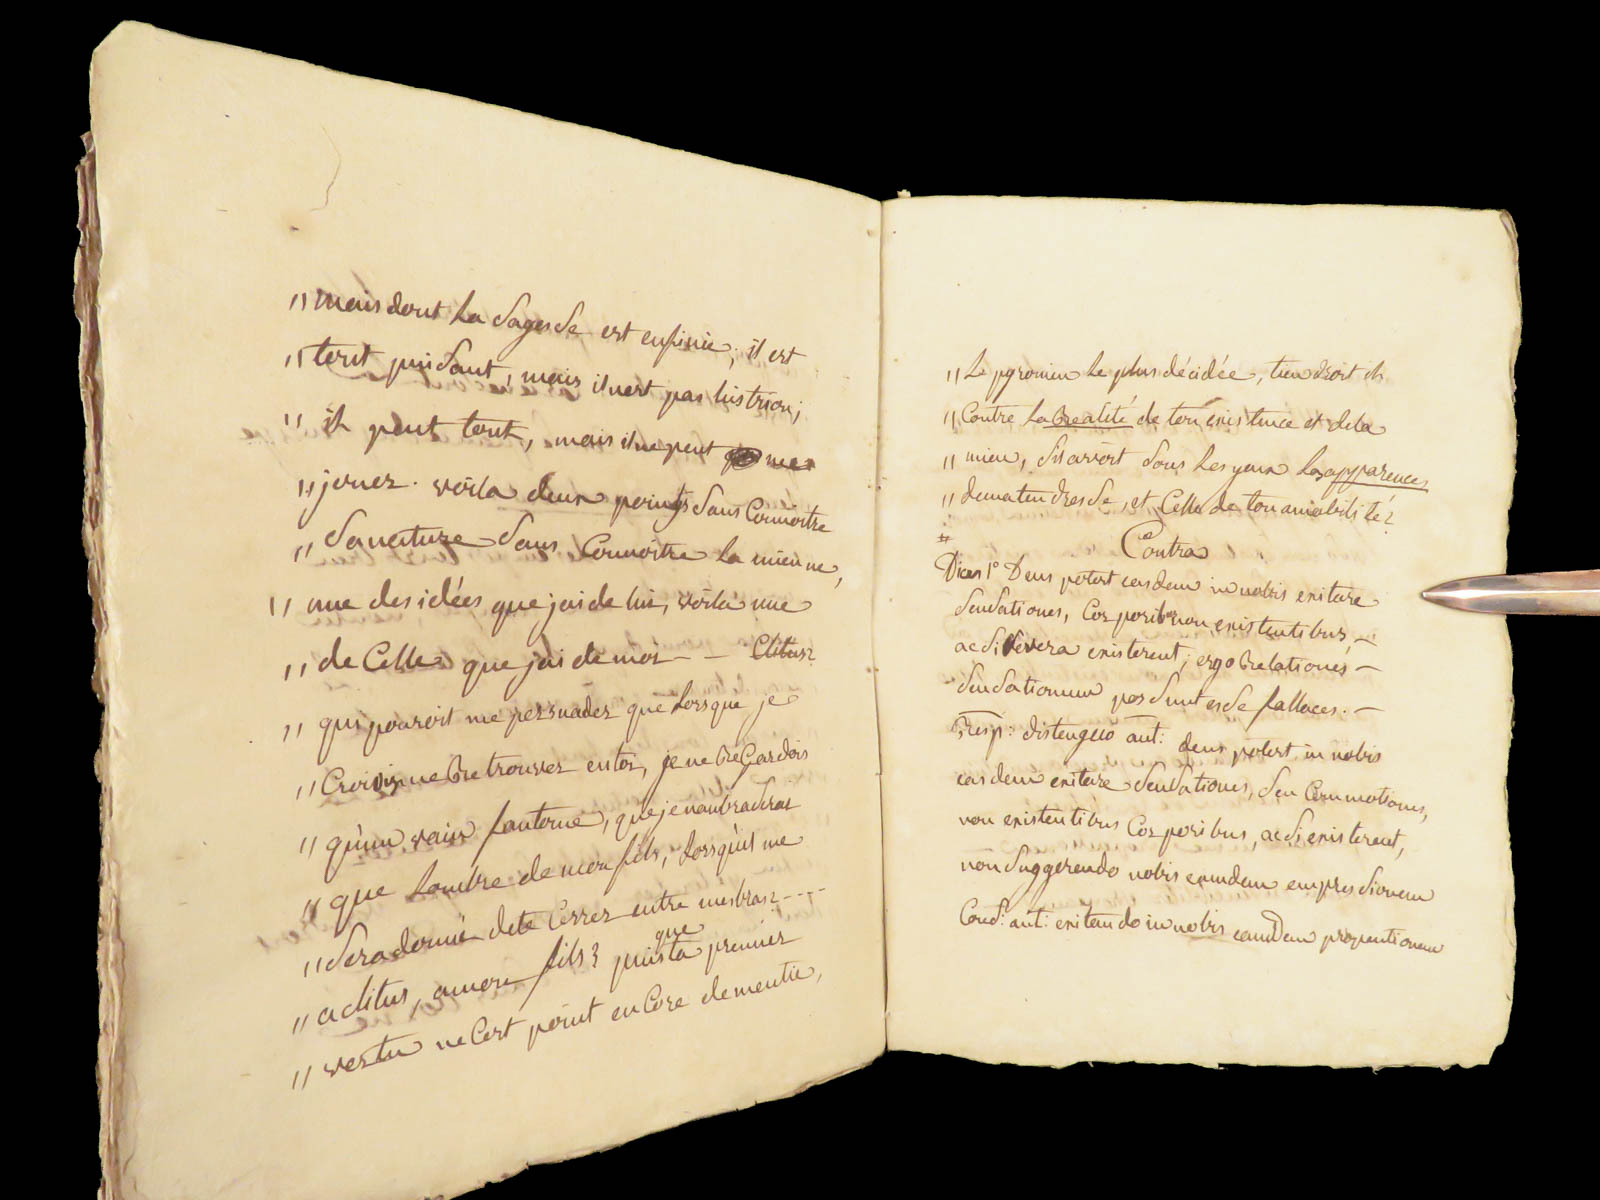 " mais dont la sagesse est enfinie; il est
" tout puissant, mais il n'est pas histrion;
" il peut tout, mais il ne peut me
" jouer. voila deux points sans connoitre
" sa nature sans connoitre la mienne,
" une des idées que jai de lui, voila une
" de celle que jai de moi - - Clitus?
" qui pouroit me persuader que lorsque je
" croirois ne retrouver en toi, je ne regardois
" qu'un vain fantome, que je n'anbrasserai
" que l'ombre de mon fils, lorsqu'il me
" sera donné de te serrer entre mes bras? - - - -
" a clitus, a mon fils? puis que ta premier
" vertu ne c'est point encore dementie,
" Le pyronien le plus décidée, tiendroit il
" contre la realité de ton existence et de la
" mien, s'il avoit sous les yeux les apparences
" de ma tendresse, et celle de ton amabilité?
#
Contra
Dices 1° Deus potest easdem in nobis exitare
sensationes, corporibus non existentibus, -
ac si revera existerent; ergo relationes -
sensationum possunt esse fallaces. -
Resp: distenguo ant: deus potest in nobis
easdem exitare sensationes, seu commotiones,
non existentibus corporibus, ac si existerent,
non suggerendo nobis eamdem empressionem
Conc: ant: exitando in nobis eamdem propentionem